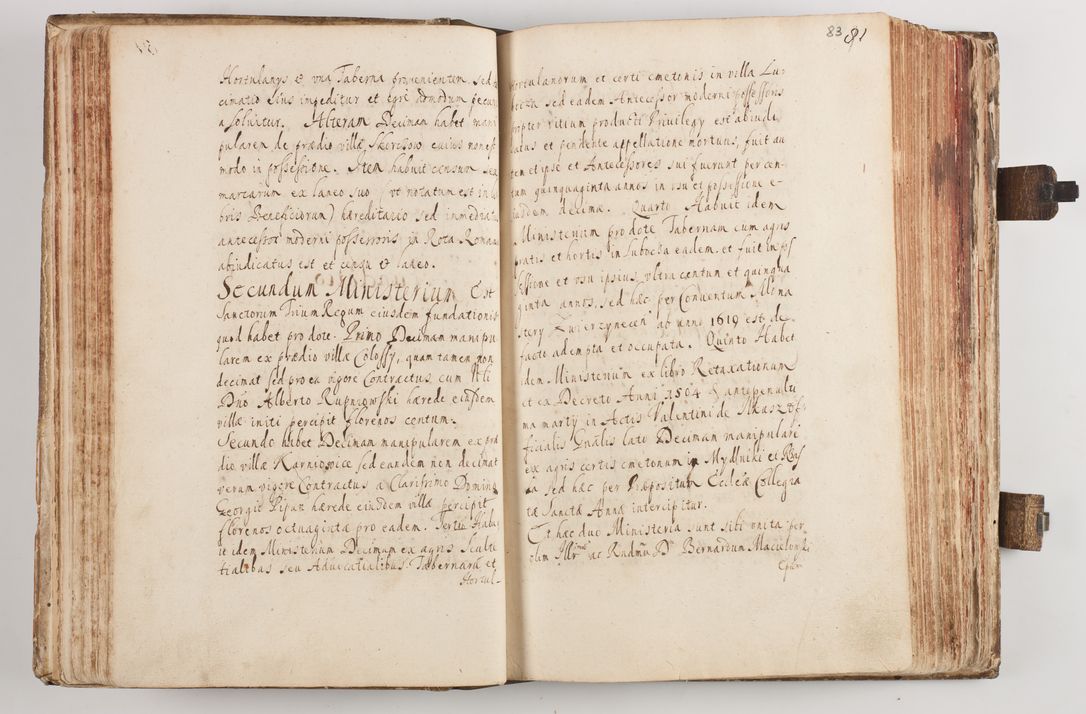 Hortulanys et vna Taberna provenientem, sed de
cimatio eius impeditur et egre admodum pecun
a soluitur. Alteram Decimam habet mani
pularem de prædio villæ Skorczow cuius non est
modo in possessione. Item habuit censum sex
marcarum ex laneo suo (vt notatum est in li
bris Beneficiorum) hæreditario sed inmediatus
antecessor moderni possessoris in Rota Romana
abiudicatus est et censu et laneo.
Secundum Ministerium Est
Sanctorum Trium Regum eiusdem fundationis
quod habet pro dote. Primo Decimam manipu
larem ex prædio villæ Colossy, quam tamen non
decimat sed pro ea vigore Contractus cum
Dno Alberto Rupniowski hærede eiusdem
villæ initi percipit florenos centum.
Secundo habet Decimam manipularem ex præ
dio villæ Karniowice sed eandem non decimat
verum vigore Contractus a Clarissimo Domino
Georgio Pipan hærede eiusdem villæ percipit
florenos octuaginta pro eadem. Tertio Habu
it idem Ministerium Decimam ex agris Sculte
tialibus seu Aduocatialibus Tabernaru et
Hortul-
83 81
Hortulanorum et certi cmetonis in villa Lu-
bocza sed eadem Antecessor moderni possessoris
propter vitium producti Privilegy est abiudi
catus et pendente appellatione mortuus, fuit au
tem et ipse et Antecessores sui fuerunt per cen-
tum quinquaginta annos in vsu et possessione e-
iusdem decimæ. Quarto Habuit idem
Ministerium pro dote Tabernam cum agris
pratis et hortis in Lubocza eadem. et fuit in pos
sessione et vsu ipsius vltra centum et quinqua
ginta annos, sed hæc per Conventum Mona
stery Zwierzynecen ab anno 1619 est de
facto adempta et occupata. Quinto Habet
idem Ministerium ex libro Retaxationum
et ex Decreto Anni 1504 antepenulti
ma marty in Actis Valentini de Ilkasz Of-
ficialis Gnalis lato Decimam manipularē
ex agris certis cmetonum in Mydlniki et Rzas
ka sed hæc per Præpositum Eccleæ Collegia
tæ Sanctæ Annæ intercipitur.
Et hæc duo Ministeria sunt sibi vnita per
olim Illrimum ac Rndmu D Bernardum Macieiowski
Epum